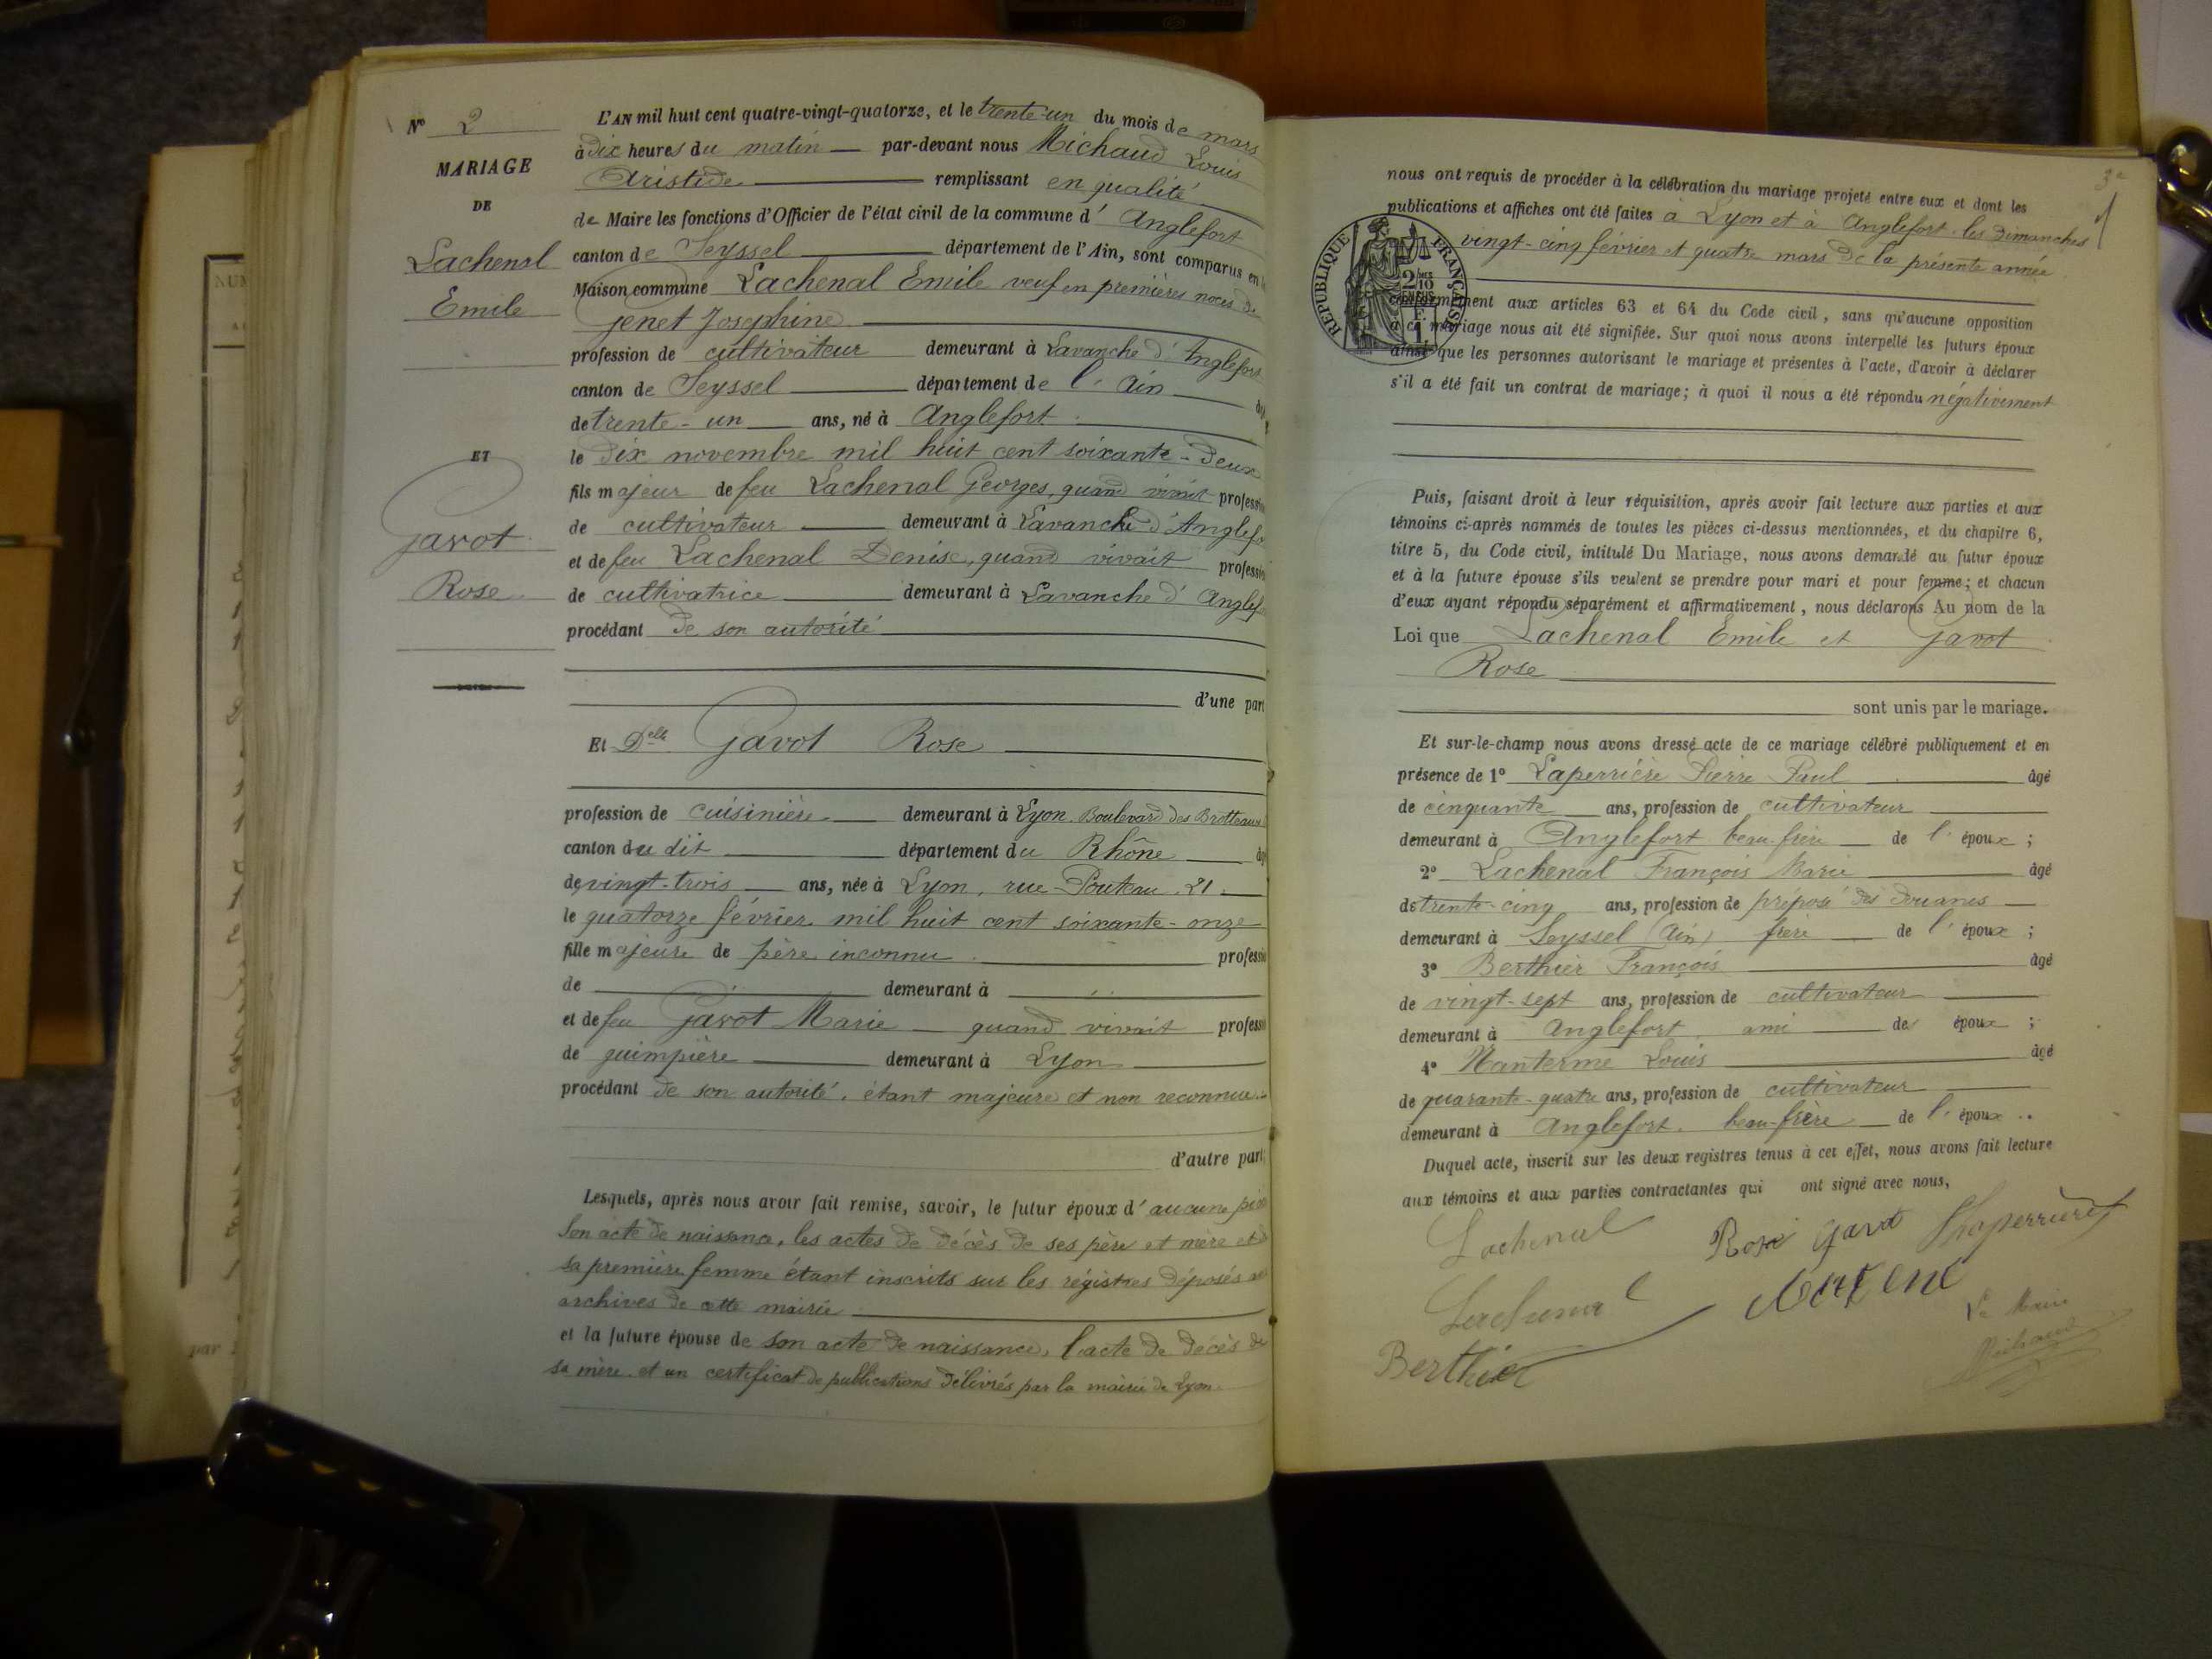 N° 2
MARIAGE
DE
Lachenal
Emile
ET
Gavot
Rose
L'AN mil huit cent quatre-vingt-quatorze, et le trente-un du mois de mars
à dix heures du matin par-devant nous Michaud Louis
Aristide remplissant en qualité
de Maire les fonctions d'Officier de l'état civil de la commune d' Anglefort
canton de Seyssel département de l'Ain, sont comparus en la
Maison commune Lachenal Emile veuf en premières noces de
Genet Joséphine
profession de cultivateur demeurant à Lavanche d'Anglefort
canton de Seyssel département de l'Ain
de trente-un ans, né à Anglefort
le dix novembre mil huit cent soixante-deux
fils majeur de feu Lachenal Georges, quand vivait profession
de cultivateur demeurant à Lavanche d'Anglefo
et de feu Lachenal Denise, quand vivait profession
de cultivatrice demeurant à Lavanche d'Anglefo
procédant de son autorité
d'une part
Et Delle Gavot Rose
profession de cuisinière demeurant à Lyon. Boulevard des Brotteaux
canton du dit département du Rhône
de vingt-trois ans, née à Lyon, rue Pouteau, 21
le quatorze février mil huit cent soixante-onze
fille majeure de père inconnu professi
de demeurant à
et de feu Gavot Marie quand vivait profess
de guimpière demeurant à Lyon
procédant de son autorité, étant majeure et non reconnue
d'autre part;
Lesquels, après nous avoir fait remise, savoir, le futur époux d'aucune pièce
Son acte de naissance, les actes de décès de ses père et mère et de
sa première femme étant inscrits sur les régistres déposés aux
archives de cette mairie
et la future épouse de son acte de naissance, l'acte de décès de
sa mère et un certificat de publications délivrés par la mairie de Lyon.
3e
nous ont requis de procéder à la célébration du mariage projeté entre eux et dont les
publications et affiches ont été faites à Lyon et à Anglefort les dimanches
vingt-cinq février et quatre mars de la présente année
RÉPUBLIQUE FRANÇAISE
conformément aux articles 63 et 64 du Code civil, sans qu'aucune opposition
à ce mariage nous ait été signifiée. Sur quoi nous avons interpellé les futurs époux
ainsi que les personnes autorisant le mariage et présentes à l'acte, d'avoir à déclarer
s'il a été fait un contrat de mariage; à quoi il nous a été répondu négativement
Puis, faisant droit à leur réquisition, après avoir fait lecture aux parties et aux
témoins ci-après nommés de toutes les pièces ci-dessus mentionnées, et du chapitre 6,
titre 5, du Code civil, intitulé Du Mariage, nous avons demandé au futur époux
et à la future épouse s'ils veulent se prendre pour mari et pour femme; et chacun
d'eux ayant répondu séparément et affirmativement, nous déclarons Au nom de la
Loi que Lachenal Emile et Gavot
Rose
sont unis par le mariage.
Et sur-le-champ nous avons dressé acte de ce mariage célébré publiquement et en
présence de 1° Laperrière Pierre Paul âgé
de cinquante ans, profession de cultivateur
demeurant à Anglefort beau-frère de l'époux;
2° Lachenal François Marie âgé
de trente-cinq ans, profession de préposé des douanes
demeurant à Seyssel (Ain) frère de l'époux;
3° Berthier François âgé
de vingt-sept ans, profession de cultivateur
demeurant à Anglefort ami des époux;
4° Nanterme Louis âgé
de quarante-quatre ans, profession de cultivateur
demeurant à Anglefort. beau-frère de l'époux.
Duquel acte, inscrit sur les deux registres tenus à cet effet, nous avons fait lecture
aux témoins et aux parties contractantes qui ont signé avec nous,
Lachenal Rose Gavot Laperrière
Lachenal
Berthier
Le Maire
Michaud